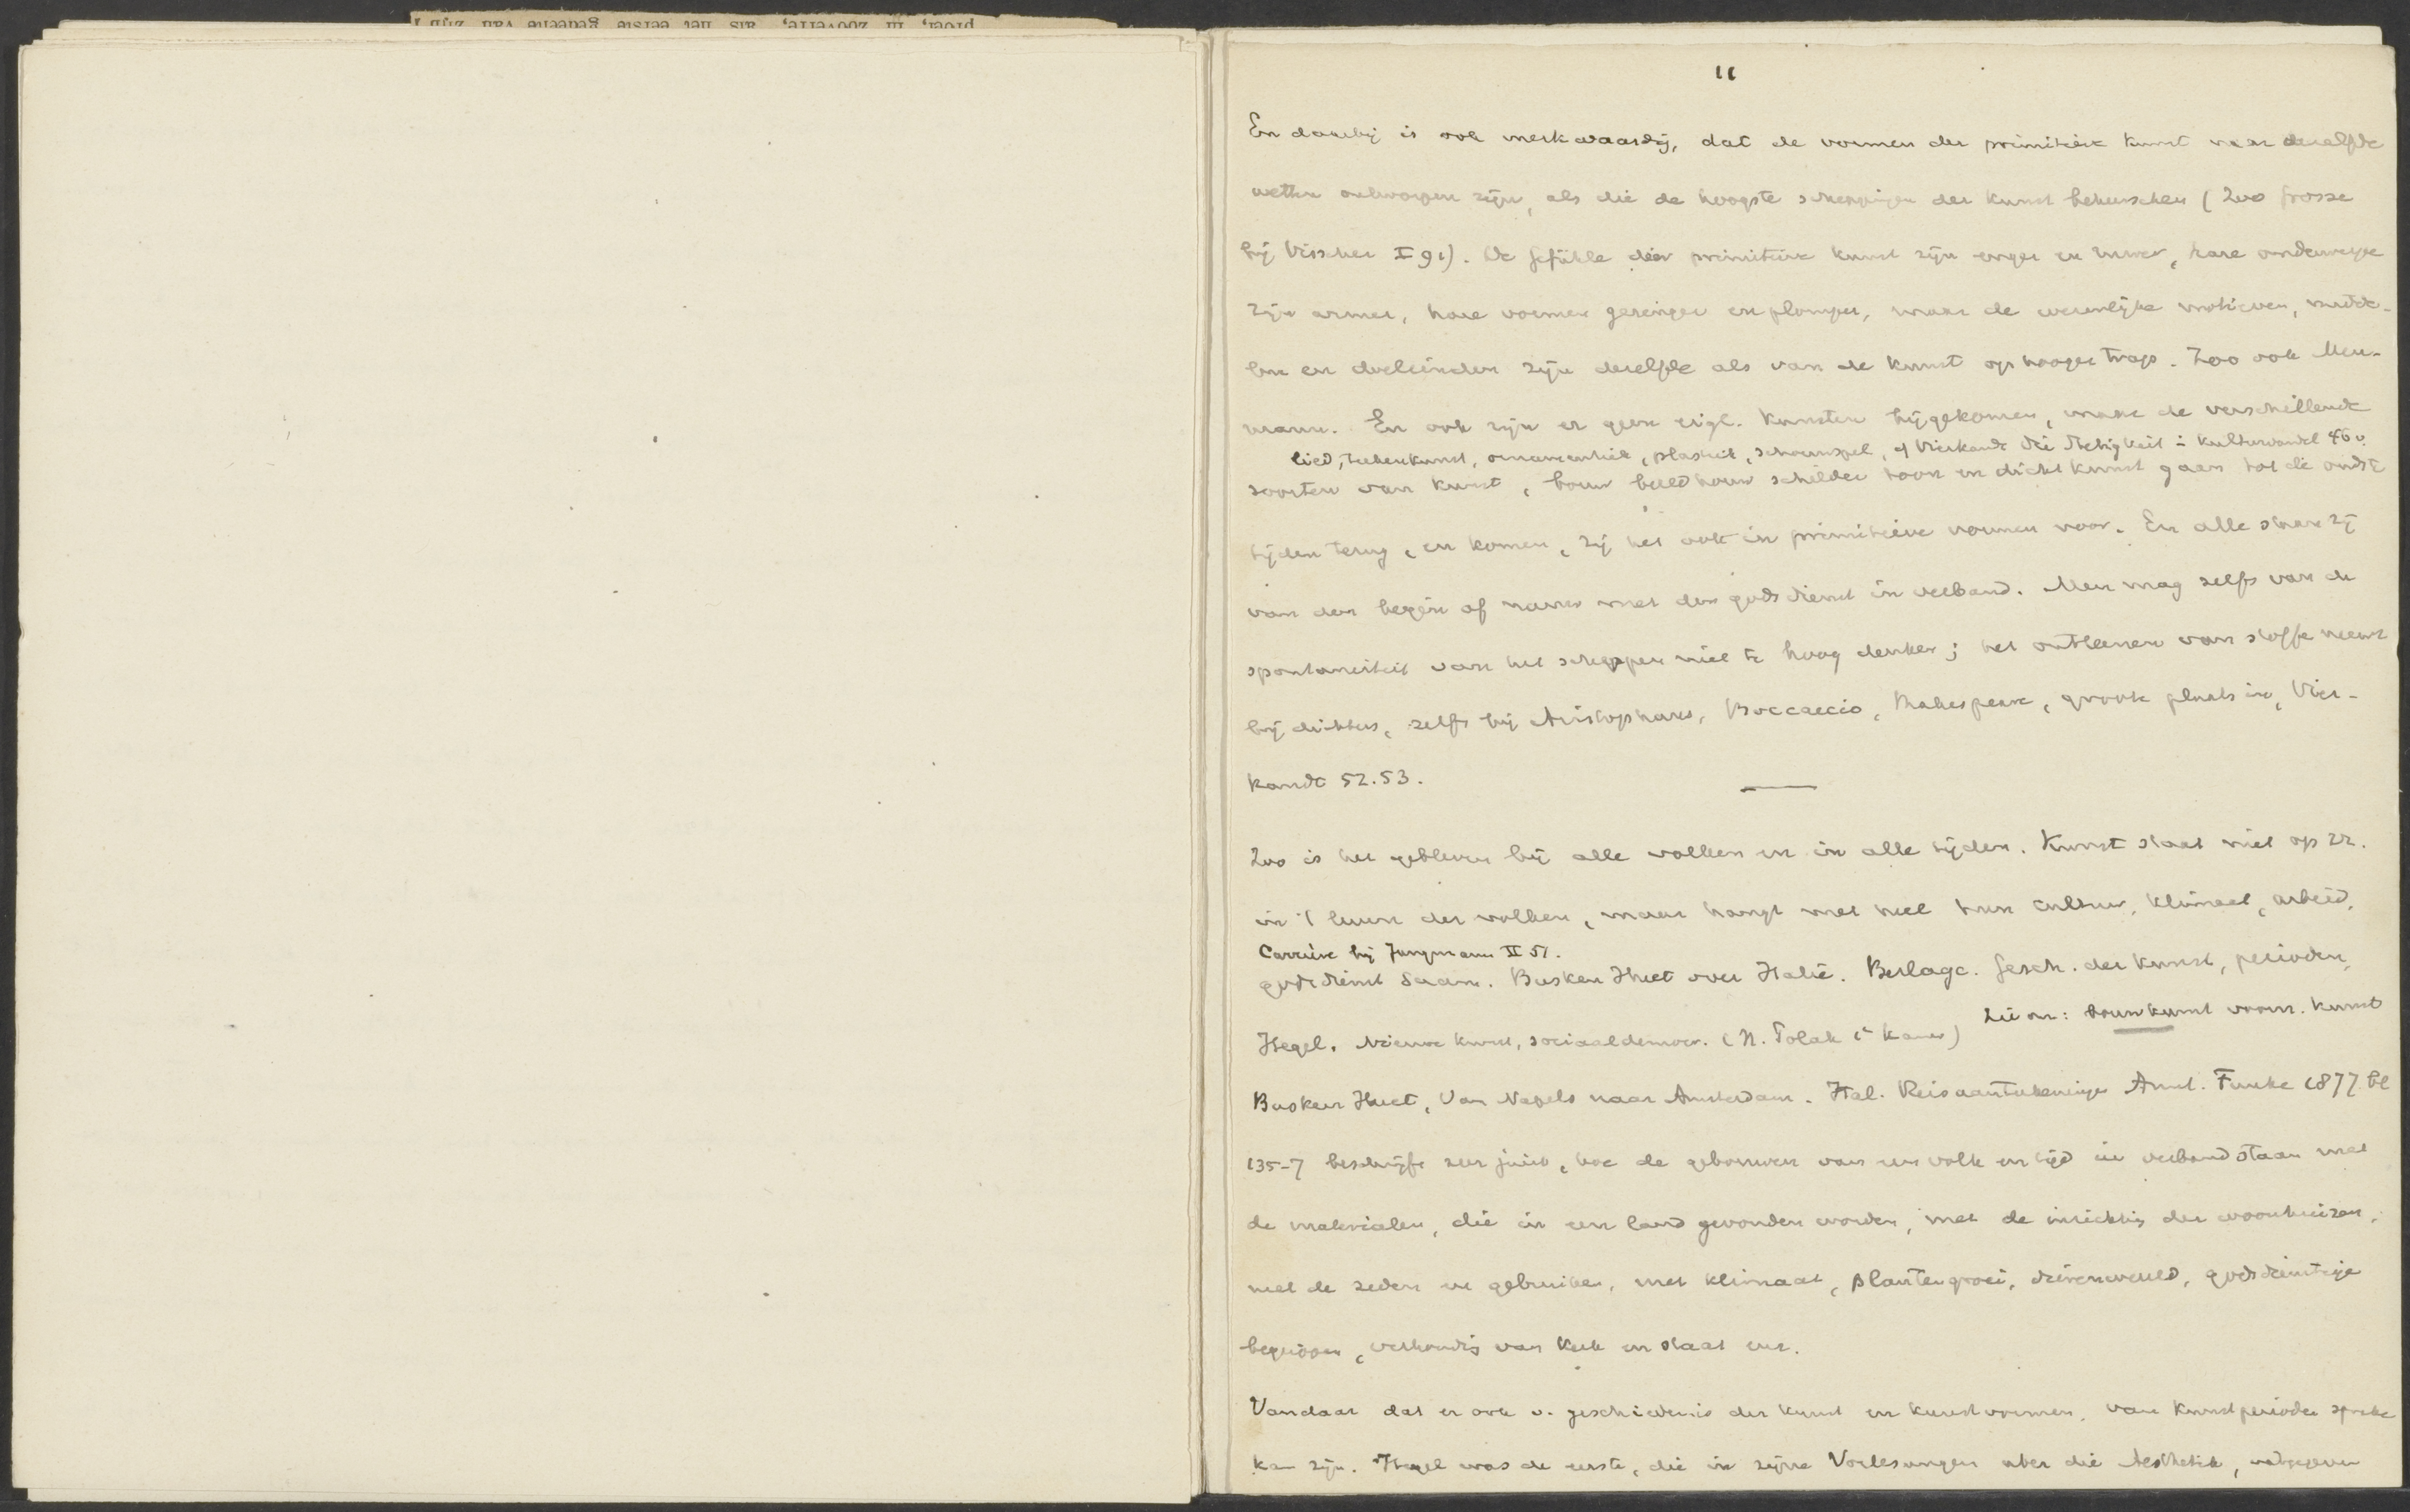 11
En daarbij is ook merkwaardig, dat de vormen der primitieve kunst naar dezelfde
wetten ontworpen zijn, als die de hoogste scheppingen der kunst beheerschen (Zoo Grosse
bij Visscher I 91). De Gefühle der primitieve kunst zijn enger en ruwer, hare onderwerpen
zijn armer, hare vormen geringer en plomper, maar de wezenlijke motieven, midde-
len en doeleinden zijn dezelfde als van de kunst op hooger trap. Zoo ook Meu-
mann. En ook zijn er geen eigl. kunsten bijgekomen, maar de verschillende
lied, teekenkunst, ornamentiek, plastiek, schouwspel, cf Vierkandt Die Stetigkeit i Kulturwandel 46 v.
soorten van kunst, bouw beeldhouw schilder toon en dichtkunst gaan tot de oudste
tijden terug, en komen, zij het ook in primitieve vormen voor. En alle staan zij
van den begin af nauw met den godsdienst in verband. Men mag zelfs van de
spontaneiteit van het scheppen niet te hoog denken; het ontleenen van stoffe neemt
bij dichters, zelfs bij Aristophanes, Boccaccio, Shakespeare, groote plaats in, Vier-
kandt 52.53.
Zoo is het gebleven bij alle volken en in alle tijden. Kunst staat niet op zz.
in 't leven der volken, maar hangt met heel hun cultuur, klimaat, arbeid,
Carrière bij Jungmann II 51.
godsdienst saam. Busken Huet over Italië. Berlage. Gesch. der kunst, perioden,
Hegel. Nieuwe kunst, sociaaldemocr. (H. Polak i/d Kamer)
zie om: bouwkunst voorn. kunst
Busken Huet, Van Napels naar Amsterdam. Ital. Reisaanteekeningen Amst. Funke 1877 bl
135-7 beschrijft zeer juist, hoe de gebouwen van een volk en tijd in verband staan met
de materialen, die in een land gevonden worden, met de inrichting der woonhuizen,
met de zeden en gebruiken, met klimaat, plantengroei, dierenwereld, godsdienstige
begrippen, verhouding van kerk en staat enz.
Vandaar dat er ook v. geschiedenis der kunst en kunstvormen, van kunstperioden sprake
kan zijn. Hegel was de eerste, die in zijne Vorlesungen uber die Aesthetik, uitgegeven